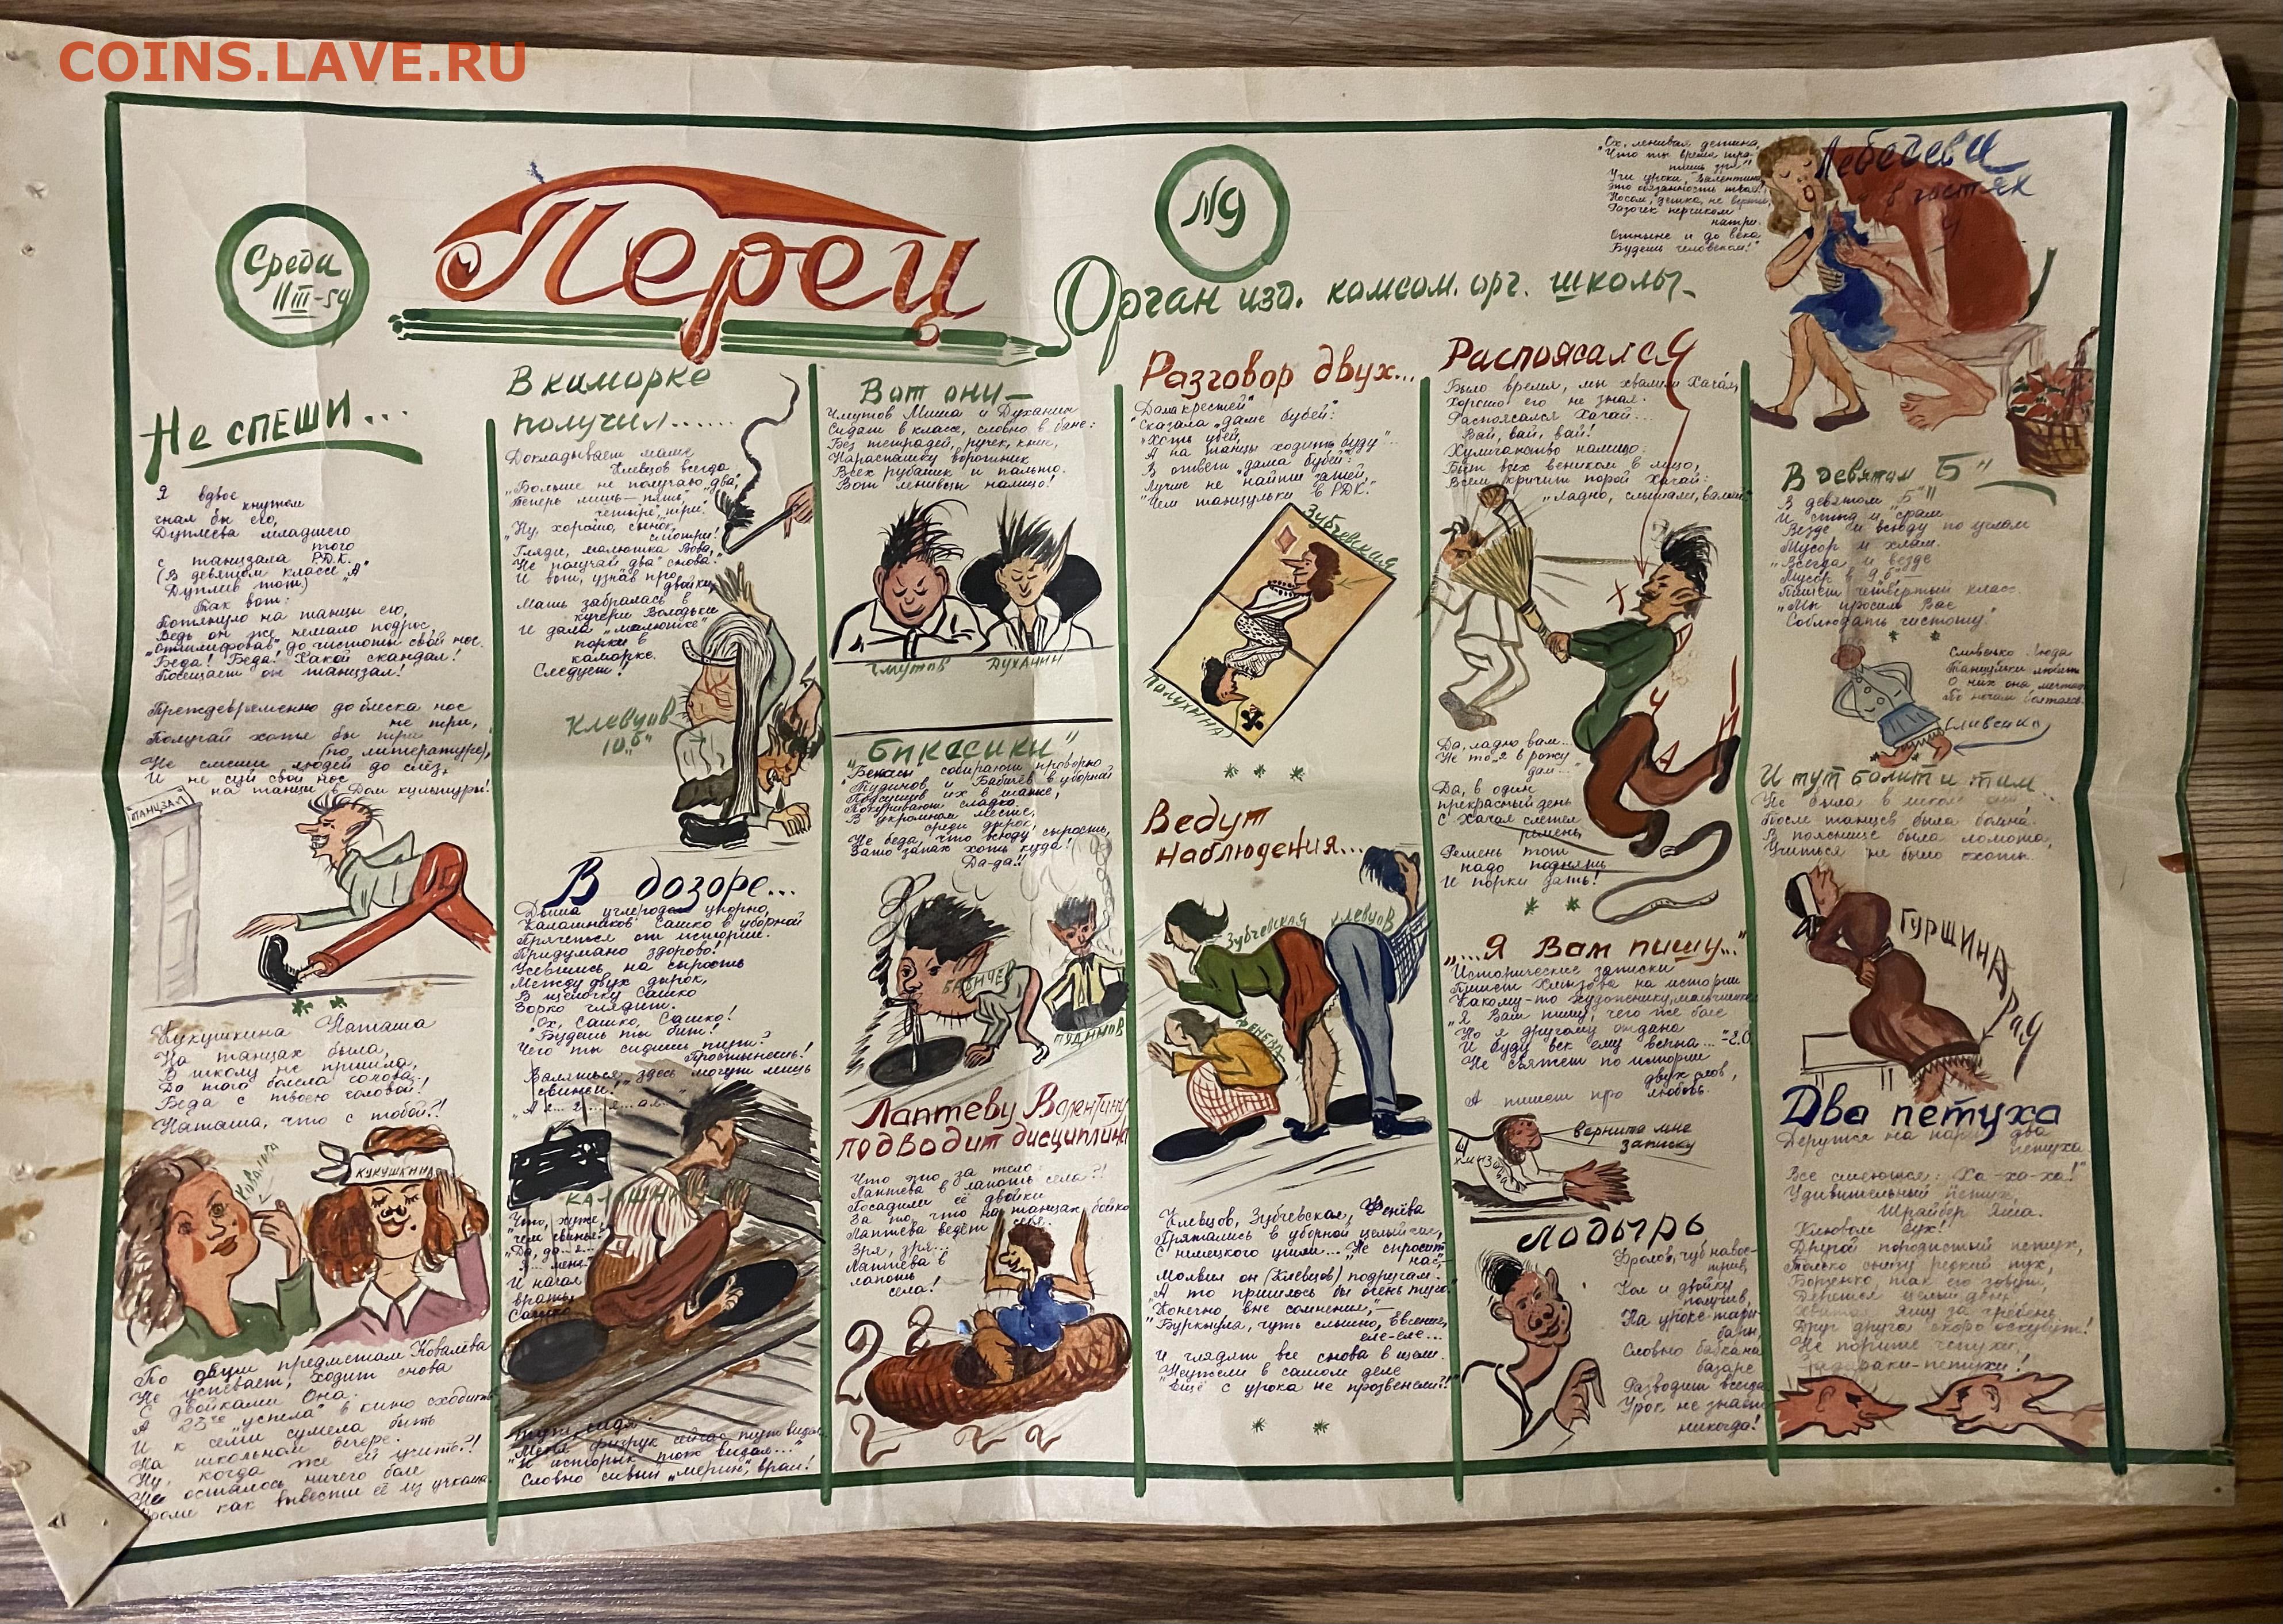 COINS.LAVE.RU
Среда
11 III-54
Перец
№9
Орган изд. комсом. орг. школы
"Ох, ленивая детина,
Что ты время тра-
тишь зря!
Учи уроки, Валентина
Это обязанность твоя!
Носом, детка, не верти,
Разочек перчиком
натри.
Отныне и до века
Будешь человеком!"
Лебедева
в гостях
у
Не СПЕШИ...
Я вдвое кнутом
гнал бы его,
Дуплева младшего
того
с танцзала Р.Д.К.
(В девятом классе "А"
Дуплев тот)
Так вот:
Потянуло на танцы его,
Ведь он уже немало подрос,
"Отшлифовав" до чистоты свой нос.
Беда! Беда! Какой скандал!
Посещает он танцзал!
Преждевременно до блеска нос
не три,
Получай хотя бы три
(по литературе),
Не смеши людей до слёз,
И не суй свой нос
на танцы в Дом культуры!
ТАНЦЗАЛ
Кукушкина Наташа
На танцах была,
В школу не пришла,
До того болела голова.
Беда с твоею головой!
Наташа, что с тобой?!
КУКУШКИНА
По двум предметам Ковалёва
Не успевает, ходит снова
С двойками она.
А 23го "успела" в кино сходить
И к семи сумела быть
На школьном вечере.
Ну, когда же ей учить?!
Не осталось ничего боле
Кроме как вывести её из учкома.
В каморке
получил......
Докладывает маме
Клевцов всегда,
"Больше не получаю "два",
Теперь лишь — пять,
четыре, три."
"Ну, хорошо, сынок,
смотри!
Гляди, малютка Вова,
Не получай "два" снова!"
И вот, узнав про
двойки,
Мать забралась в
кучери Володьки
И дала "малютке"
порки в
каморке.
Следует!
Клевцов
10 "б"
В дозоре...
Дыша углеродом упорно,
Калашников Сашко в уборной
Прячется от истории.
Придумано здорово!
Усевшись на сырость
Между двух дырок,
В щёлочку Сашко
Зорко глядит.
"Ох, Сашко, Сашко!
Будешь ты бит!
Чего ты сидишь тут?
Простынешь!
Валяться здесь могут лишь
свиньи!"
Что, хуже,
чем свинья?
"Да, да... я...
И начал
врать
Сашко
"Меня физрук сейчас тут видал
И историк тоже видал..."
Словно сивый "мерин", врал!
Вот они —
Чмутов Миша и Духанин
Сидят в классе, словно в бане:
Без тетрадей, ручек, книг,
Нараспашку воротник
Всех рубашек и пальто.
Вот ленивцы налицо!
Чмутов
Духанин
"Бикасики"
"Бекасы" собирают проворно
Тудинов и Бабичев в уборной
Подсушив их в шапке,
Покуривают сладко
В укромном месте,
среди дырок,
Не беда, что всюду сырость,
Зато запах хоть куда!
Да-да!!
БАБИЧЕВ
Лаптеву Валентину
подводит дисциплина
Что это за тело:
Лаптева в лапоть села?!
Посадили её двойки
За то, что на танцах бойко
Лаптева ведёт себя.
Зря, зря...
Лаптева в
лапоть
села!
2 2
2 2 2
Разговор двух...
"Дама крестей"
Сказала "даме бубей":
"Хоть убей,
А на танцы ходить буду"...
В ответ "дама бубей":
"Лучше не найти затей,
Чем танцульки в РДК."
Зубчевская
Полухина
Ведут
наблюдения...
Зубчевская
Клевцов
Фенева
Клевцов, Зубчевская, Фенёва
Прятались в уборной целый час,
С немецкого ушли... "Не спросит
нас,"
Молвил он (Клевцов) подругам.
"А то пришлось бы очень туго."
"Конечно, вне сомнения," —
Буркнула, чуть слышно, Евгения,
еле-еле...
И глядят все снова в щели.
"Неужели в самом деле
Ещё с урока не прозвенели?!"
Распоясался
Было время, мы хвалили Хачая,
Хорошо его не зная.
Распоясался Хачай...
Вай, вай, вай!
Хулиганство налицо:
Бьёт всех веником в лицо,
Всем кричит порой Хачай:
"Ладно, слышали, валяй!"
ХАЧАЙ
Да, ладно вам...
Не то я в рожу
дам..."
Да, в один
прекрасный день
С Хачая слетел
ремень,
Ремень тот
надо поднять
И порки дать!
"...Я Вам пишу..."
Исторические записки
Пишет Хмызова на истории
Какому-то художнику, мальчишке
"Я Вам пишу, чего же боле
Но я другому отдана
И буду век ему верна..."
Не свяжет по истории
двух слов,
А пишет про любовь.
верните мне
записку
Лодырь
Фролов, чуб навос-
трив,
Кол и двойку
получив,
На уроке тары-
бары,
Словно бабка на
базаре
Разводит всегда.
Урок не знает
никогда!
В девятом "Б"
В девятом "Б"
И стыд и срам
Везде и всюду по углам
Мусор и хлам.
"Всегда и везде
Мусор в 9 "б" —
Пишет четвёртый класс.
"Мы просим Вас
Соблюдать чистоту."
Сливенко Люда
Танцульки любит
О них она мечтает
По ночам болтаясь.
И тут болит и там...
После танцев была больна.
В пояснице была ломота,
Учиться не было охоты.
Два петуха
Дерутся на пари два
петуха.
Все смеются: Ха-ха-ха!
Удивительный петух,
Шрайбер Яша.
Клювом бух!
Другой породистый петух,
Боженко, так его зовут,
Дерётся целый день,
Хватает Яшу за гребень.
Друг друга скоро оскубут!
Не порите чепухи,
Задираки-петухи!